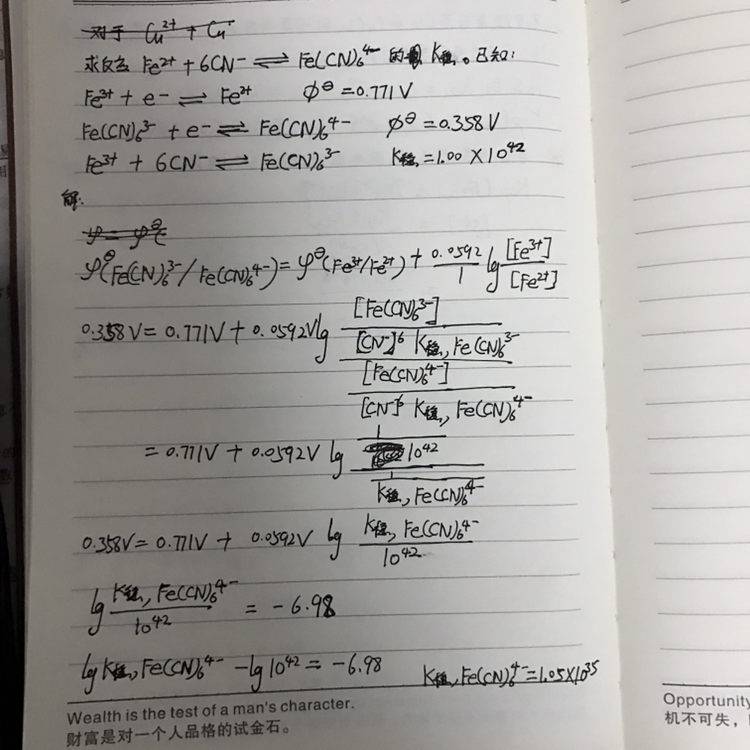 对于 Cu²⁺ + Cu
求反应 Fe²⁺ + 6CN⁻ ⇌ Fe(CN)₆⁴⁻ 的 K稳。已知:
Fe³⁺ + e⁻ ⇌ Fe²⁺ φ⊖ = 0.771V
Fe(CN)₆³⁻ + e⁻ ⇌ Fe(CN)₆⁴⁻ φ⊖ = 0.358V
Fe³⁺ + 6CN⁻ ⇌ Fe(CN)₆³⁻ K稳 = 1.00 × 10⁴²
解:
φ⊖(Fe(CN)₆³⁻/Fe(CN)₆⁴⁻) = φ⊖(Fe³⁺/Fe²⁺) + 0.0592/1 lg [Fe³⁺]/[Fe²⁺]
[Fe(CN)₆³⁻]
0.358V = 0.771V + 0.0592V lg [CN⁻]⁶ K稳, Fe(CN)₆³⁻
[Fe(CN)₆⁴⁻]
[CN⁻]⁶ K稳, Fe(CN)₆⁴⁻
1
= 0.771V + 0.0592V lg 10⁴²
1
K稳, Fe(CN)₆⁴⁻
0.358V = 0.771V + 0.0592V lg K稳, Fe(CN)₆⁴⁻
10⁴²
lg K稳, Fe(CN)₆⁴⁻/10⁴² = -6.98
lg K稳, Fe(CN)₆⁴⁻ - lg 10⁴² = -6.98 K稳, Fe(CN)₆⁴⁻ = 1.05×10³⁵
Wealth is the test of a man's character.
财富是对一个人品格的试金石。
Opportunity
机不可失，